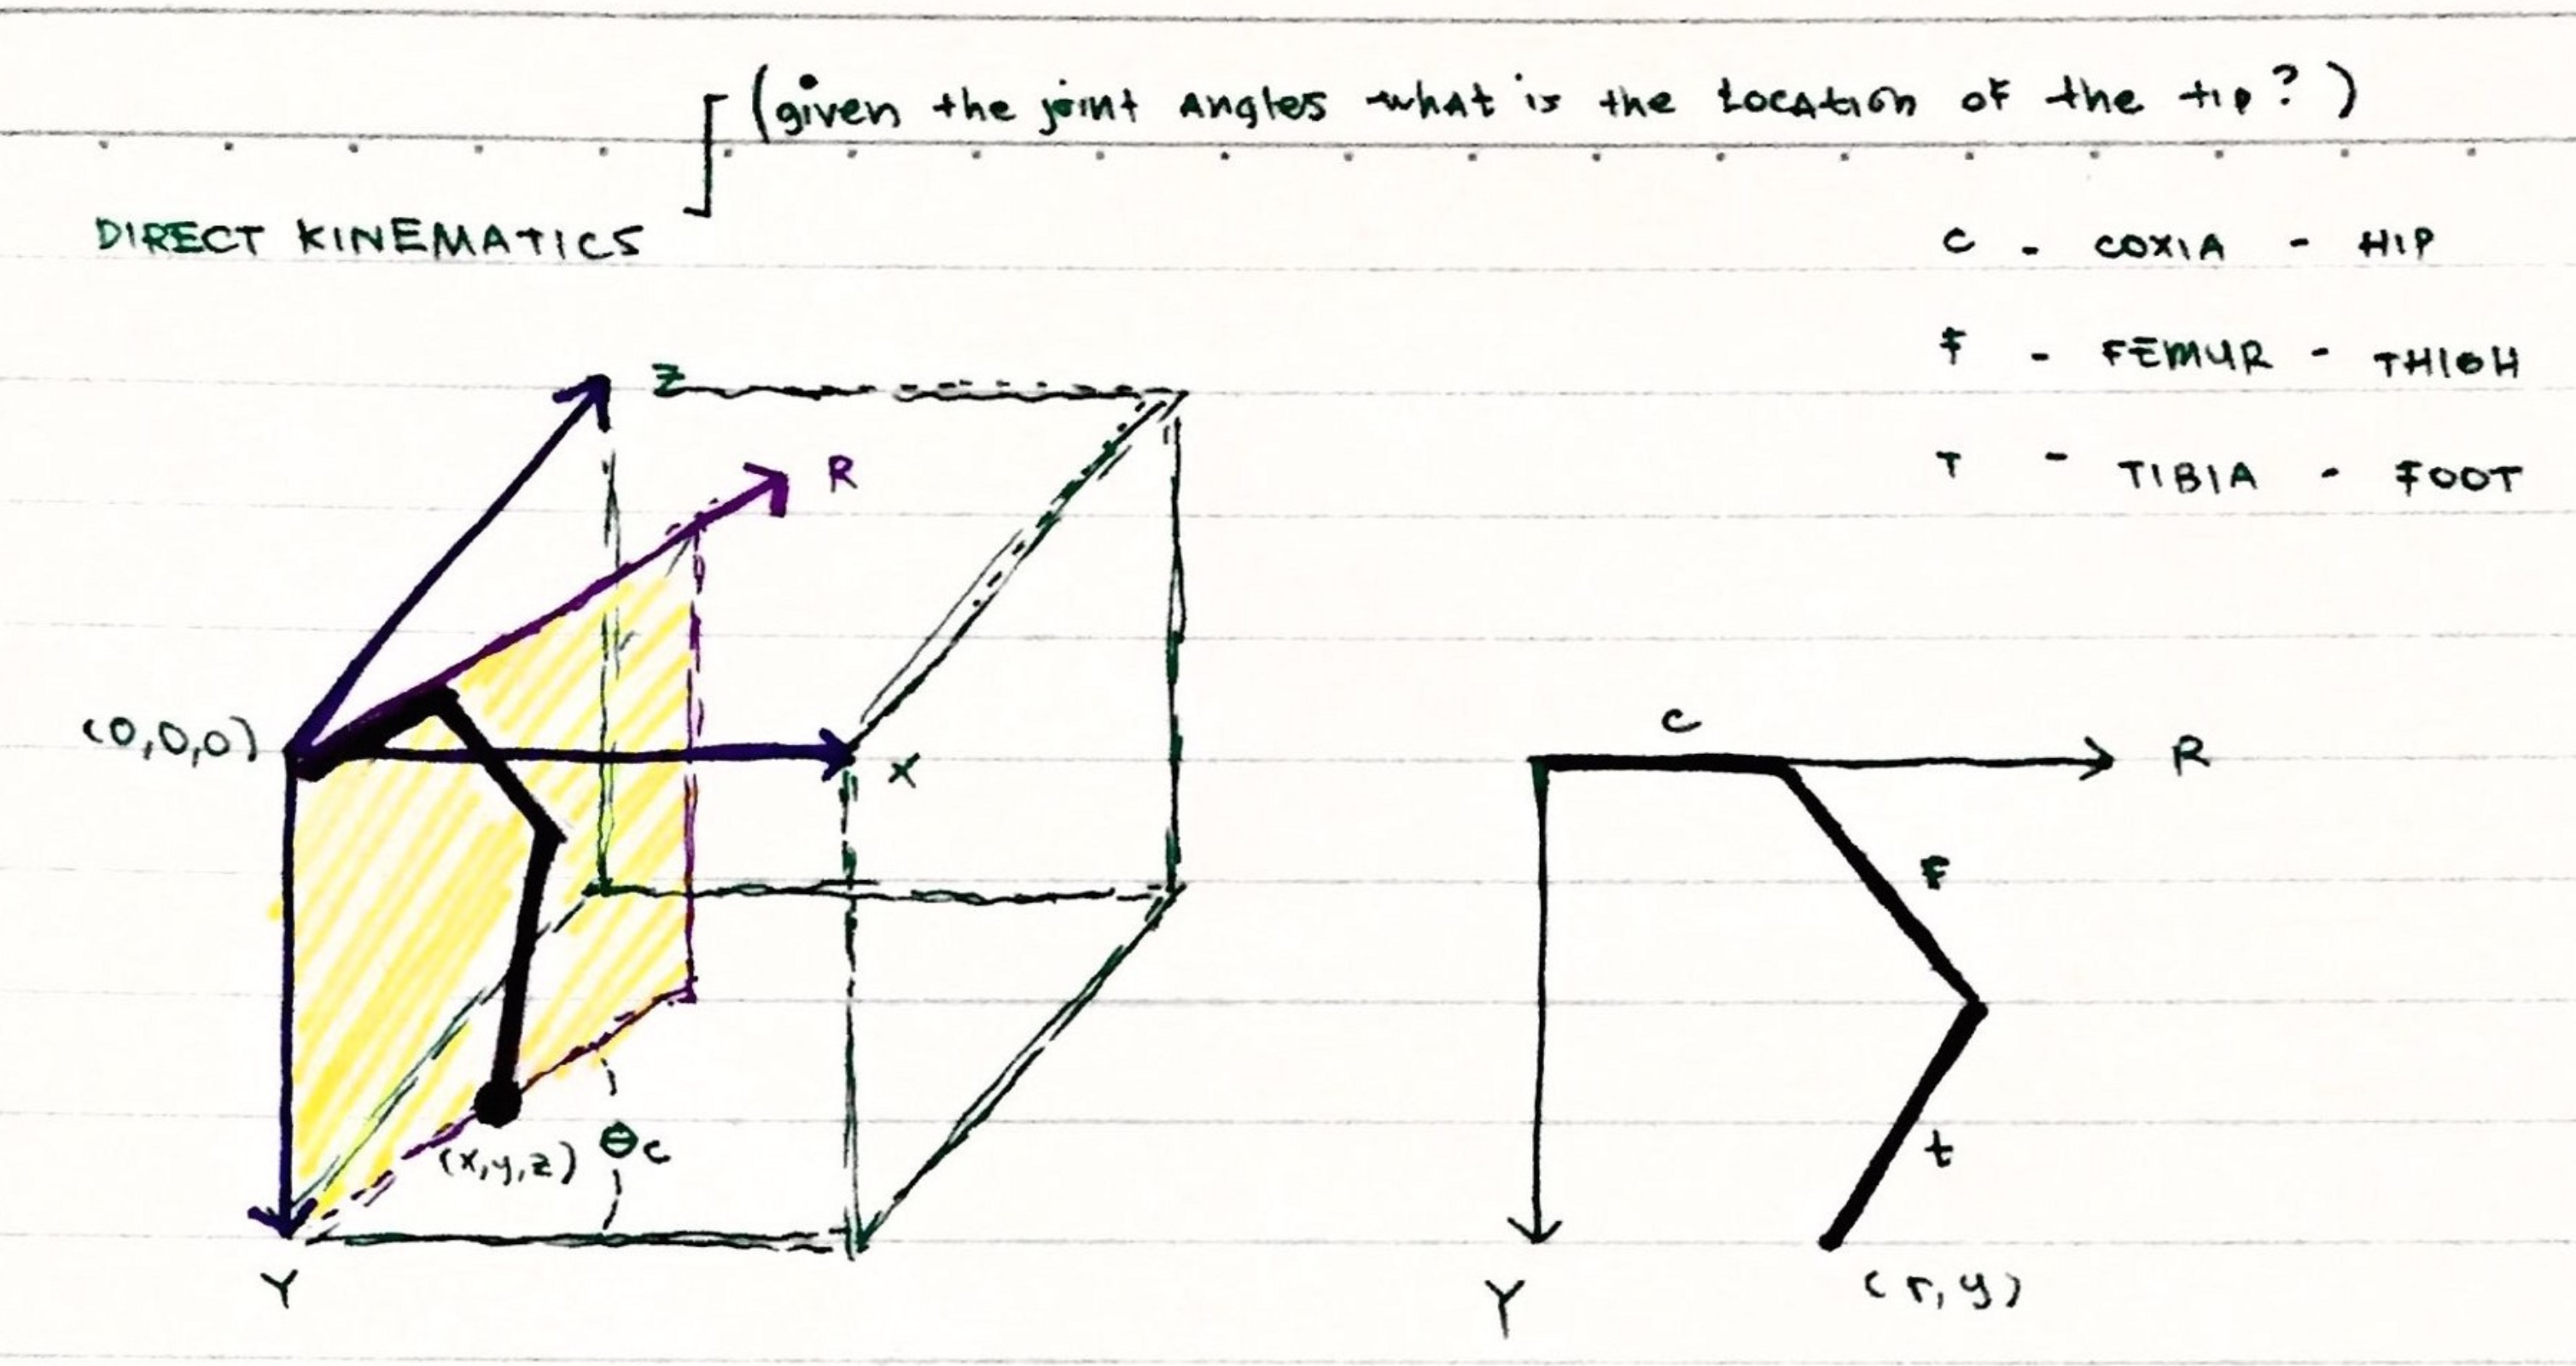 (given the joint angles what is the location of the tip?)
DIRECT KINEMATICS
C - COXIA - HIP
F - FEMUR - THIGH
T - TIBIA - FOOT
Z
R
(0,0,0)
X
(x,y,z)
θc
Y
C
R
F
t
Y
(r,y)